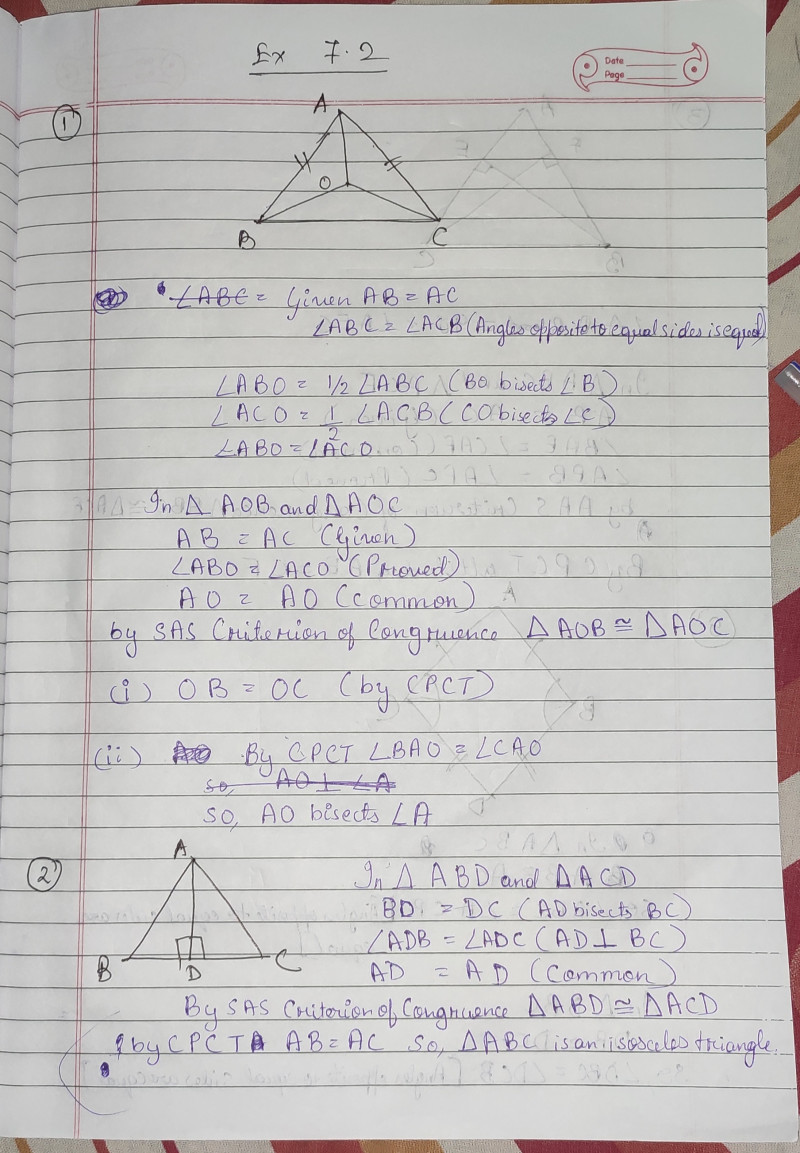 Ex 7.2
Date
Page
1
A
O
B
C
∠ABC = Given AB = AC
∠ABC = ∠ACB (Angles opposite to equal sides is equal)
∠ABO = 1/2 ∠ABC (BO bisects ∠B)
∠ACO = 1/2 ∠ACB (CO bisects ∠C)
∠ABO = ∠ACO
In △ AOB and △AOC
AB = AC (Given)
∠ABO = ∠ACO (Proved)
AO = AO (common)
by SAS Criterion of Congruence △AOB ≅ △AOC
(i) OB = OC (by CPCT)
(ii) By CPCT ∠BAO = ∠CAO
so, AO ⊥ ∠A
so, AO bisects ∠A
2
A
B
D
C
In △ ABD and △ACD
BD = DC (AD bisects BC)
∠ADB = ∠ADC (AD ⊥ BC)
AD = AD (Common)
By SAS Criterion of Congruence △ABD ≅ △ACD
by CPCT AB = AC so, △ABC is an isosceles triangle.